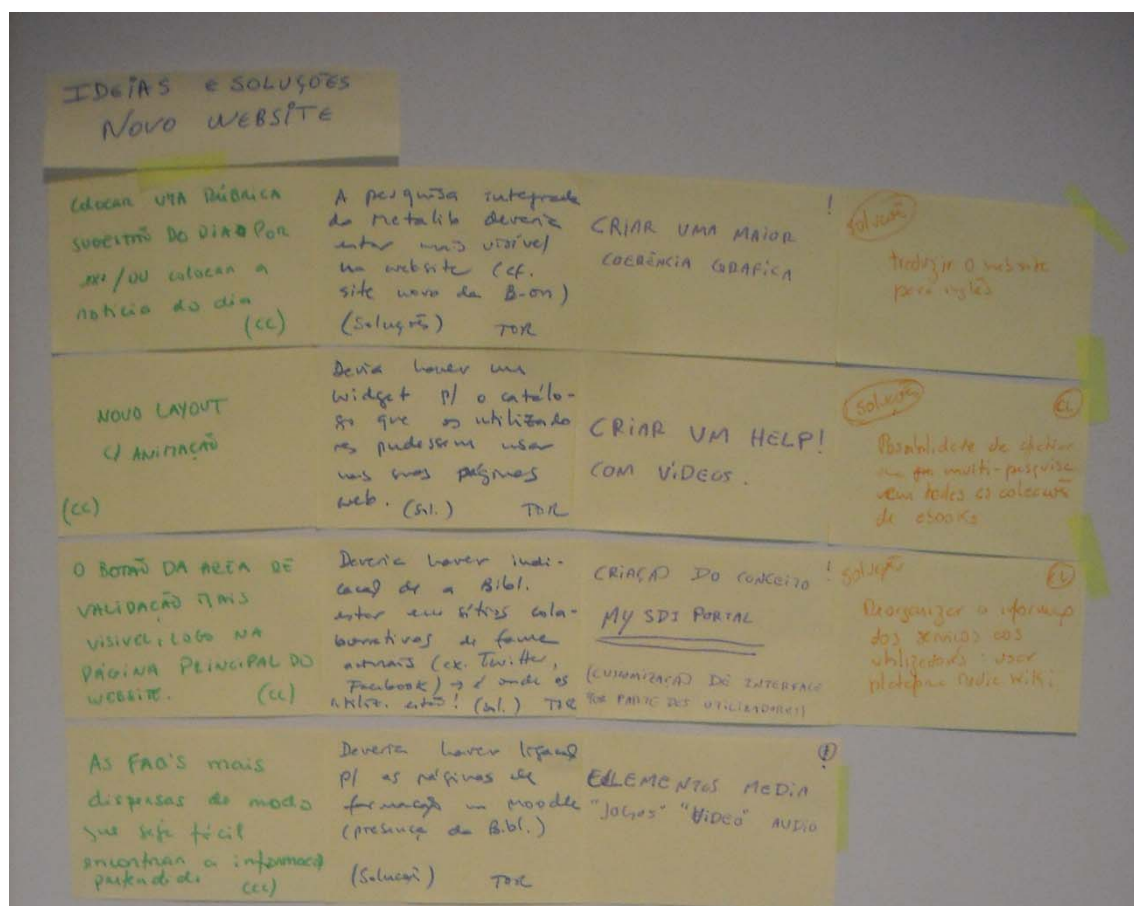 IDEIAS e SOLUÇÕES
NOVO WEBSITE
COLOCAR UMA RÚBRICA
SUGESTÃO DO DIA POR
exº/OU colocar a
notícia do dia
(CC)
A pesquisa integrada
do Metalib deveria
estar mais visível
no website (cf.
site novo da B-on)
(Soluções) TOR
!
CRIAR UMA MAIOR
COERÊNCIA GRÁFICA
Solução
Traduzir o website
para inglês
NOVO LAYOUT
C/ ANIMAÇÃO
(CC)
Devia haver um
widget p/ o catálo-
go que os utilizado
res pudessem usar
nas suas páginas
web. (Sol.) TOR
CRIAR UM HELP!
COM VÍDEOS.
Solução
CL
Possibilidade de efectuar
multi-pesquisa
em todas as colecções
de ebooks
O BOTÃO DA AREA DE
VALIDAÇÃO MAIS
VISIVEL, LOGO NA
PÁGINA PRINCIPAL DO
WEBSITE. (CC)
Deveria haver indi-
cação de a Bibl.
estar em sítios cola-
borativos de forma
(ex. Twitter,
Facebook) → é onde os
utiliz. estão! (Sol.) TOR
!
CRIAÇÃO DO CONCEITO
MY SDI PORTAL
(CUSTOMIZAÇÃO DE INTERFACE
POR PARTE DOS UTILIZADORES)
Solução
CL
Reorganizar a informação
dos serviços aos
utilizadores: usar
plataforma Media Wiki
AS FAQ'S mais
dispersas de modo
que seja fácil
encontrar a informação
pretendida (CC)
Deveria haver ligação
p/ as páginas de
formação no moodle
(presença da Bibl.)
(Solução) TOR
!
ELEMENTOS MEDIA
"JOGOS" "VIDEO" AUDIO